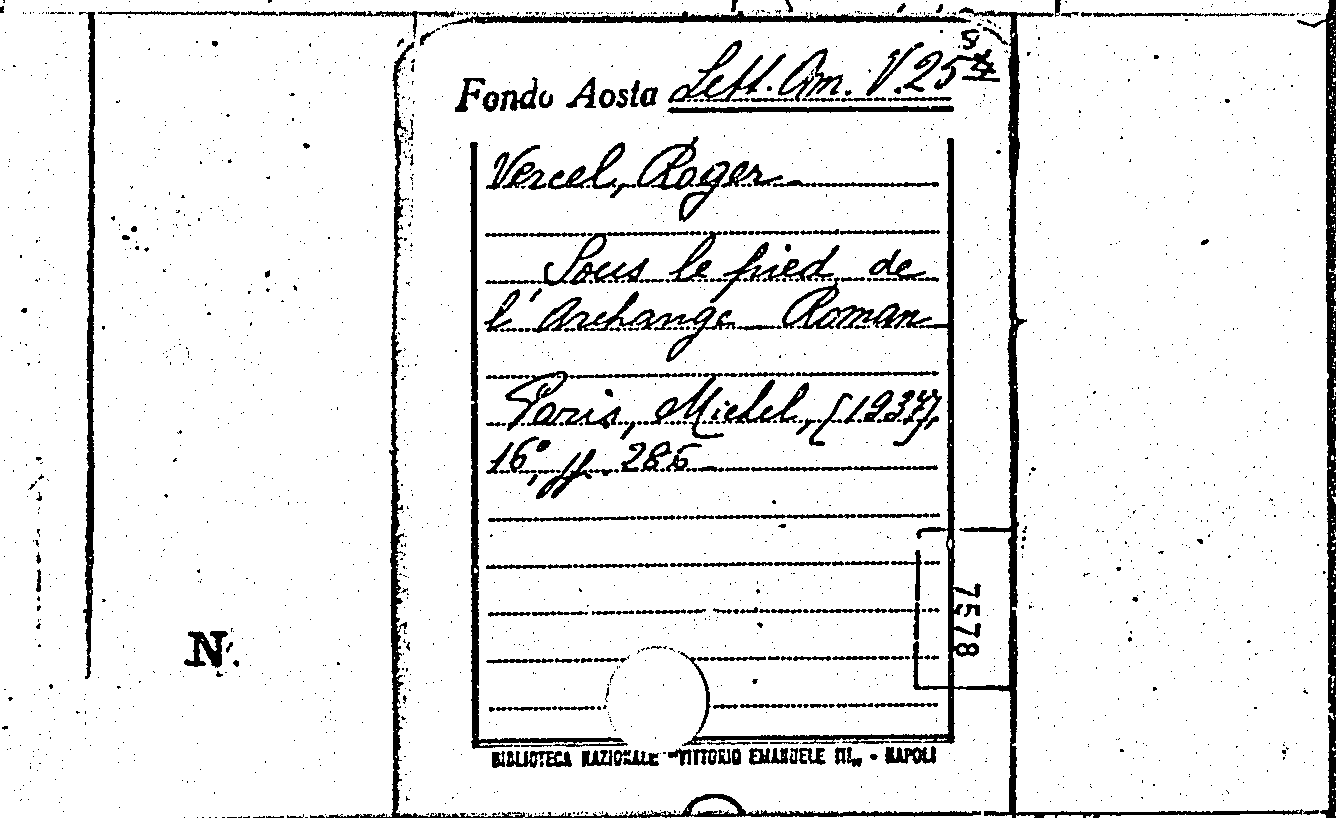 Fondo Aosta Lett. Am. V. 25
8
Vercel, Roger
Sous le pied de
l'Archange Roman
Paris, Michel, [1937],
16°, pp. 286
7578
N.
BIBLIOTECA NAZIONALE "VITTORIO EMANUELE III„ - NAPOLI